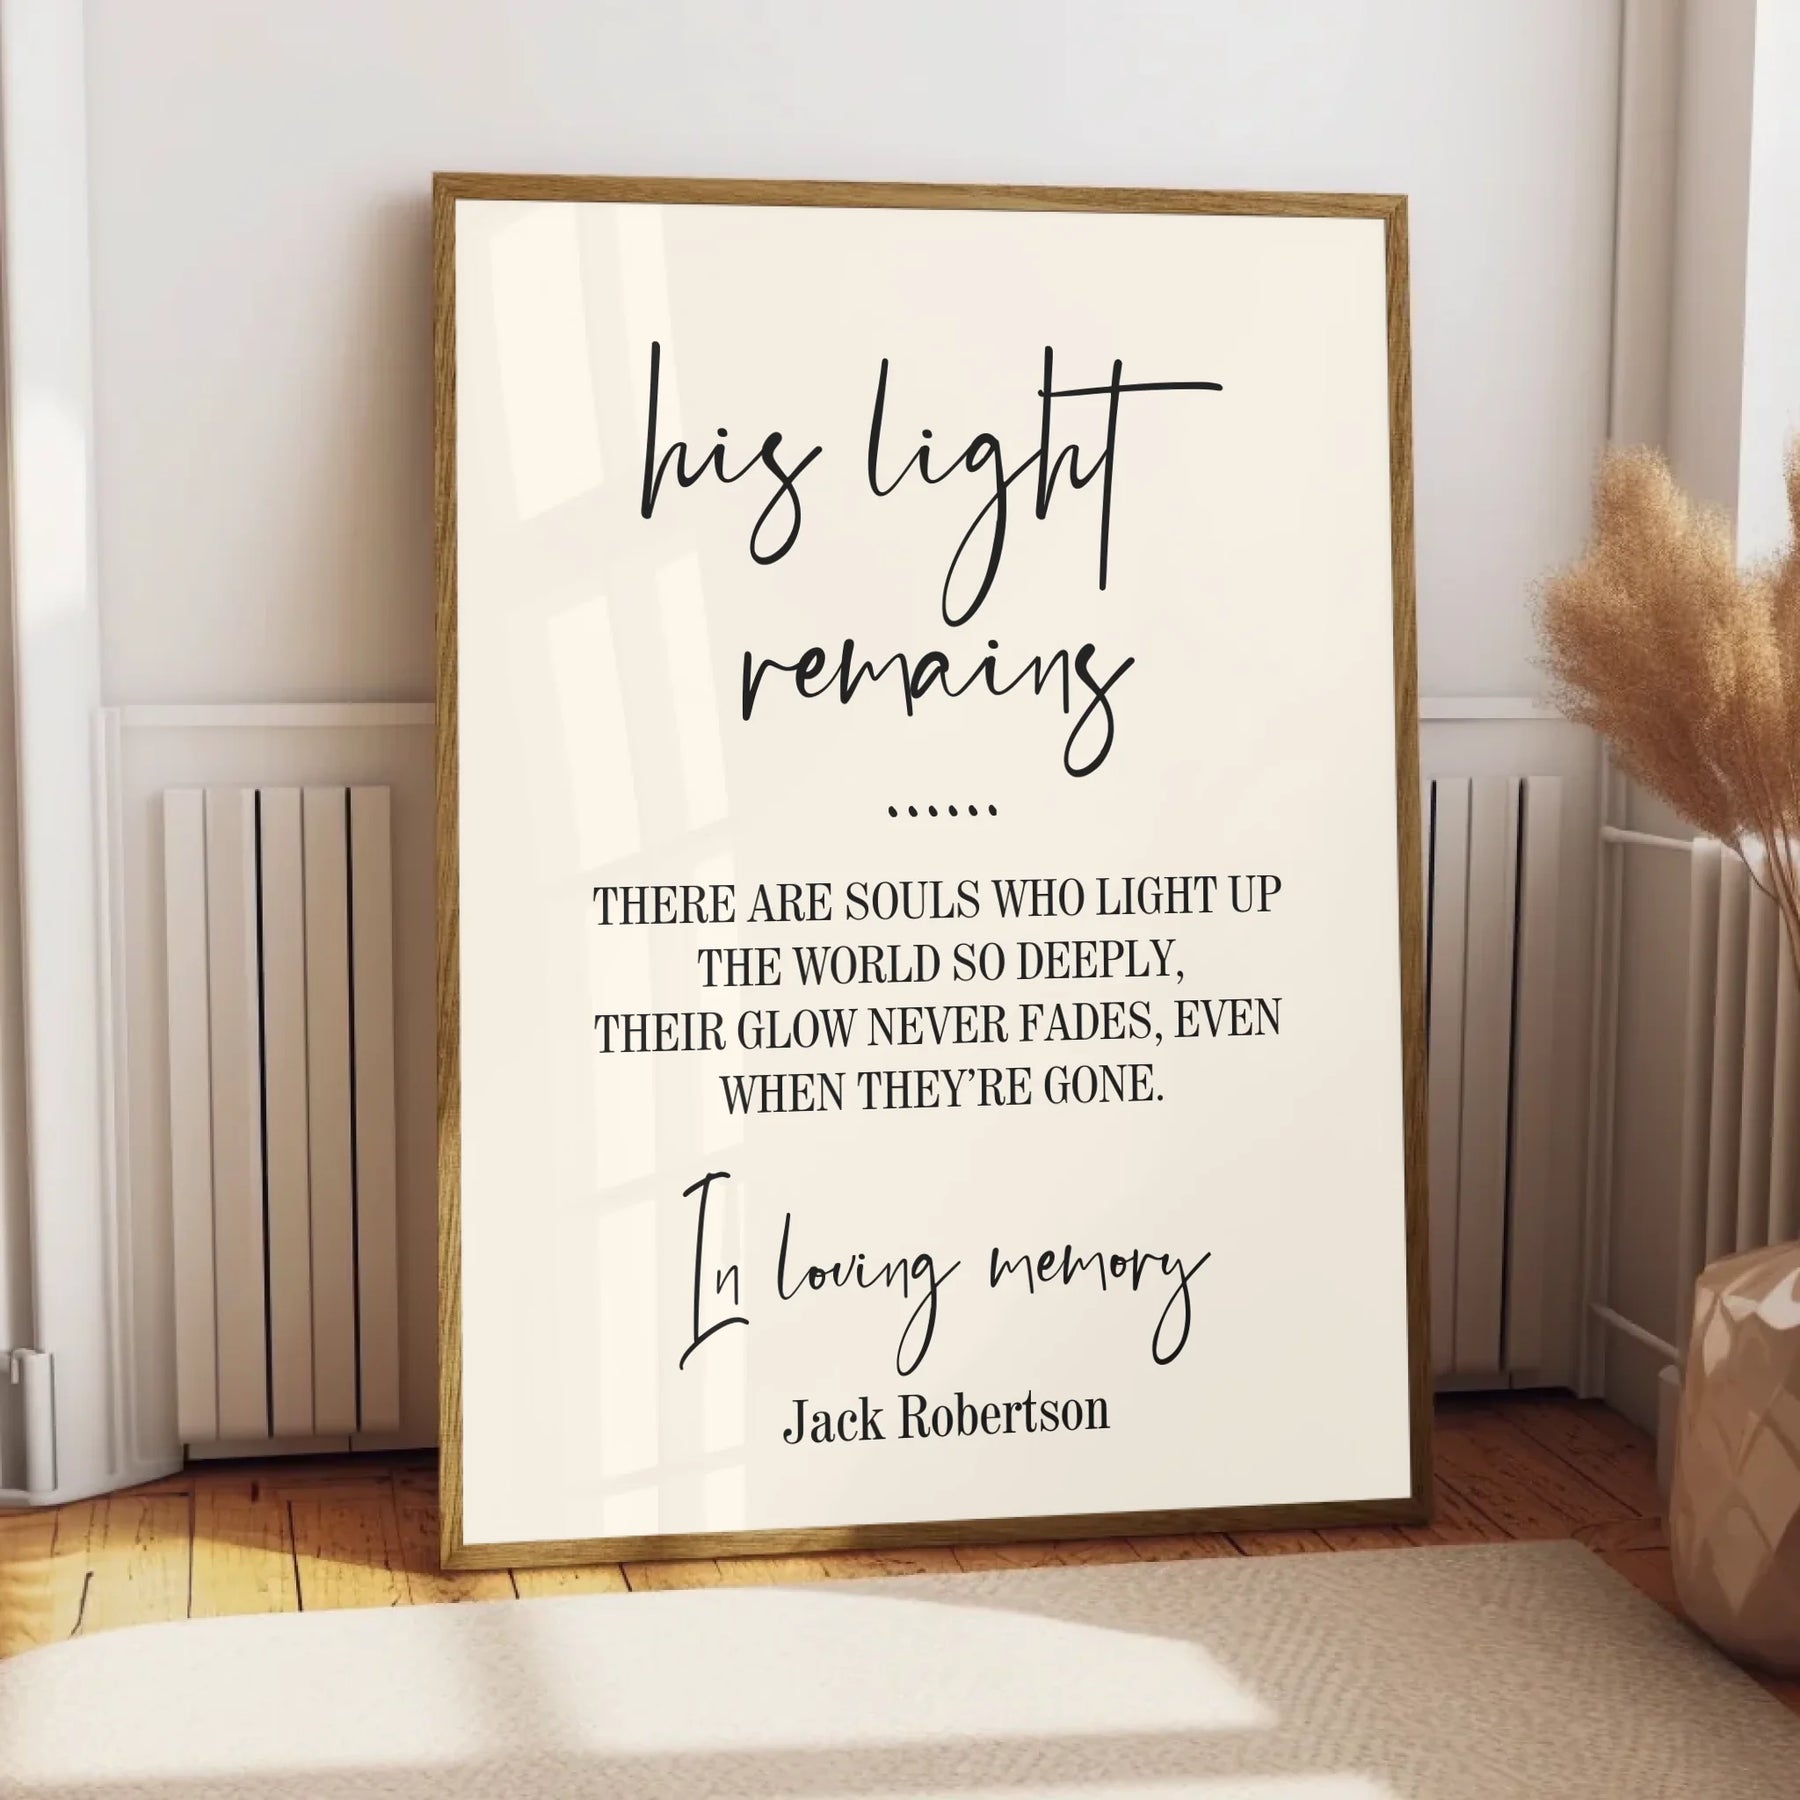 his light
remains
......
THERE ARE SOULS WHO LIGHT UP
THE WORLD SO DEEPLY,
THEIR GLOW NEVER FADES, EVEN
WHEN THEY’RE GONE.
In loving memory
Jack Robertson